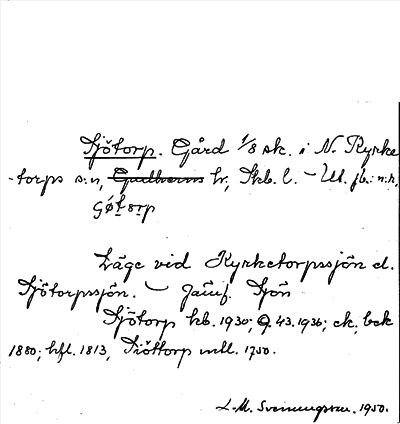 Sjötorp. Gård 1/8 sk. i N. Kyrke
-torps s:n, Gudhems hr, Skb. l. – Utt. fb.: n:r,
Läge vid Kyrketorpssjön el.
Sjötorpssjön. – Jämf. Sjön
Sjötorp kb. 1930; 43. 1936; ek. bok
1880; hfl. 1813, Siöttorp mtl. 1750.
L.-M. Svenungsson. 1950.